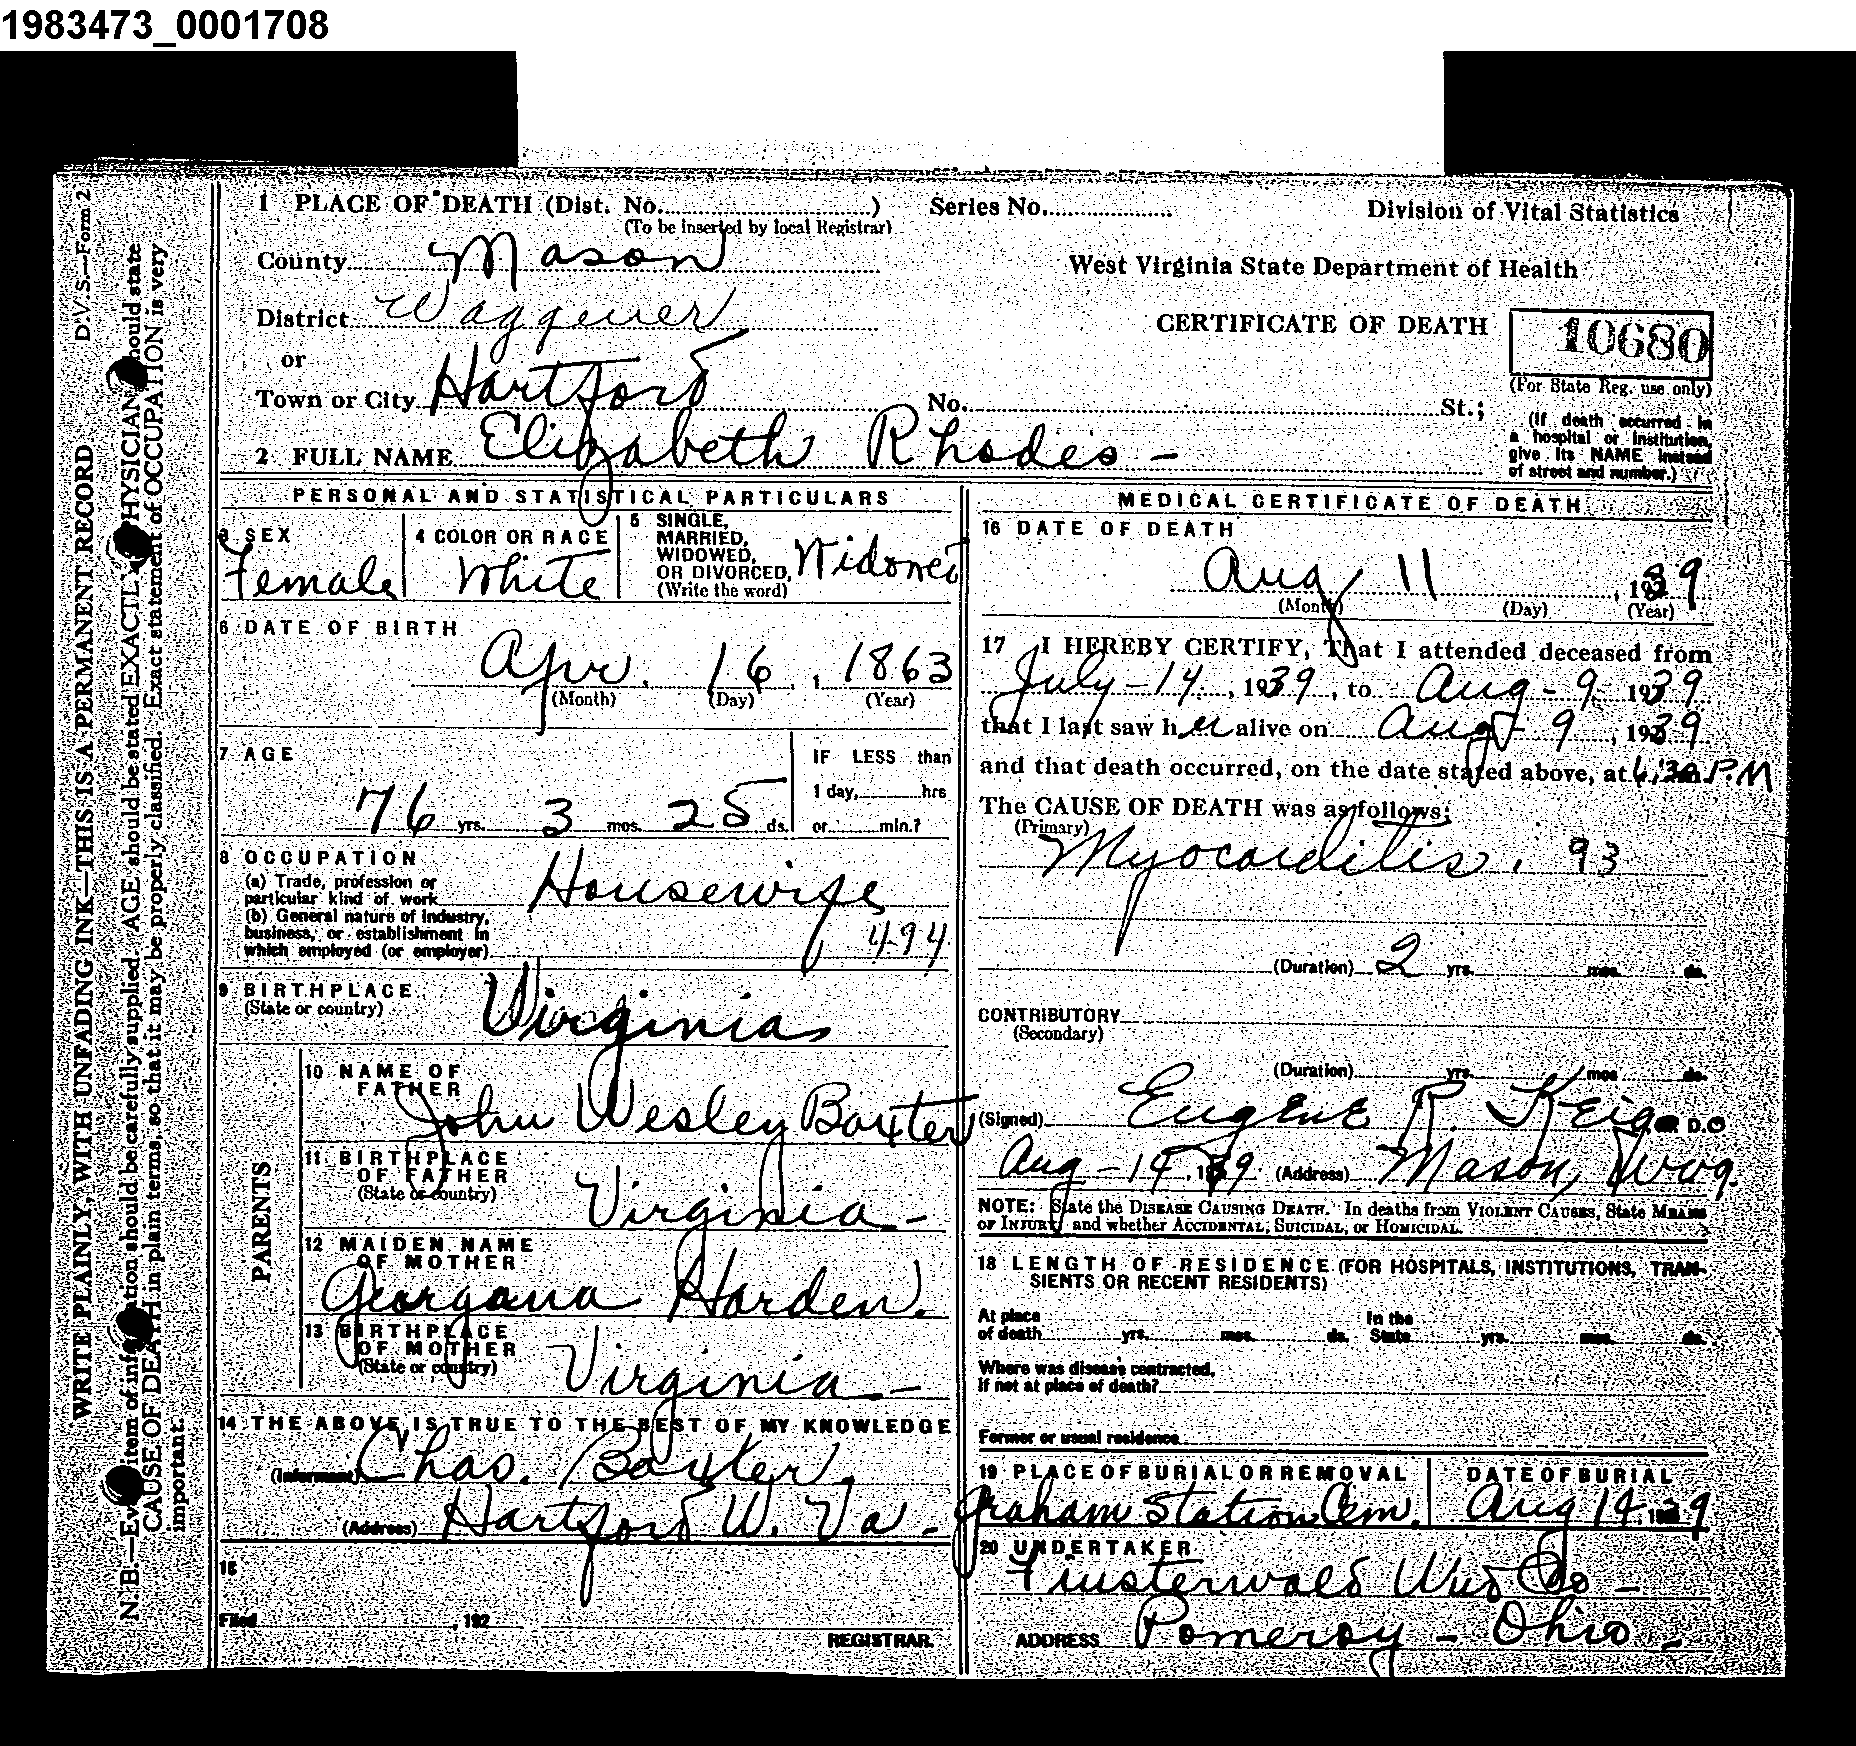 1983473_0001708
D.V.S.—Form 2
WRITE PLAINLY, WITH UNFADING INK—THIS IS A PERMANENT RECORD
N. B.—Every item of information should be carefully supplied. AGE should be stated EXACTLY. PHYSICIAN should state
CAUSE OF DEATH in plain terms, so that it may be properly classified. Exact statement of OCCUPATION is very
important.
1 PLACE OF DEATH (Dist. No. ) Series No.
(To be inserted by local Registrar)
County Mason
District Waggener
or
Town or City Hartford No. St.;
2 FULL NAME Elizabeth Rhodes -
Division of Vital Statistics
West Virginia State Department of Health
CERTIFICATE OF DEATH 10680
(For State Reg. use only)
(If death occurred in
a hospital or institution,
give its NAME instead
of street and number.)
PERSONAL AND STATISTICAL PARTICULARS
3 SEX
Female
4 COLOR OR RACE
White
5 SINGLE,
MARRIED,
WIDOWED,
OR DIVORCED,
(Write the word)
Widowed
6 DATE OF BIRTH
Apr. 16, 1863
(Month) (Day) (Year)
7 AGE
76 yrs. 3 mos. 25 ds.
IF LESS than
1 day, hrs
or min.?
8 OCCUPATION
(a) Trade, profession or
particular kind of work Housewife
(b) General nature of Industry,
business, or establishment in
which employed (or employer) 494
9 BIRTHPLACE
(State or country) Virginia
PARENTS
10 NAME OF
FATHER
John Wesley Baxter
11 BIRTHPLACE
OF FATHER
(State or country) Virginia -
12 MAIDEN NAME
OF MOTHER
Georgana Harden.
13 BIRTHPLACE
OF MOTHER
(State or country) Virginia -
14 THE ABOVE IS TRUE TO THE BEST OF MY KNOWLEDGE
(Informant) Chas. Baxter.
(Address) Hartford W. Va -
15
Filed , 192
REGISTRAR.
MEDICAL CERTIFICATE OF DEATH
16 DATE OF DEATH
Aug 11 , 1939
(Month) (Day) (Year)
17 I HEREBY CERTIFY, That I attended deceased from
July - 14 , 1939 , to Aug - 9 1939
that I last saw her alive on Aug 9 , 1939
and that death occurred, on the date stated above, at P.M
The CAUSE OF DEATH was as follows:
(Primary)
Myocarditis. 93
(Duration) 2 yrs. mos. ds.
CONTRIBUTORY
(Secondary)
(Duration) yrs. mos ds.
(Signed) Eugene R. D.O
Aug - 14, 1939 (Address) Mason,
NOTE: State the DISEASE CAUSING DEATH. In deaths from VIOLENT CAUSES, State MEANS
OF INJURY and whether ACCIDENTAL, SUICIDAL, or HOMICIDAL.
18 LENGTH OF RESIDENCE (FOR HOSPITALS, INSTITUTIONS, TRAN-
SIENTS OR RECENT RESIDENTS)
At place
of death yrs. mos. ds.
In the
State yrs. mos. ds.
Where was disease contracted,
If not at place of death?
Former or usual residence
19 PLACE OF BURIAL OR REMOVAL
Graham Station Cem.
DATE OF BURIAL
Aug 14, 1939
20 UNDERTAKER
Finsterwald Und Co -
ADDRESS Pomeroy - Ohio -